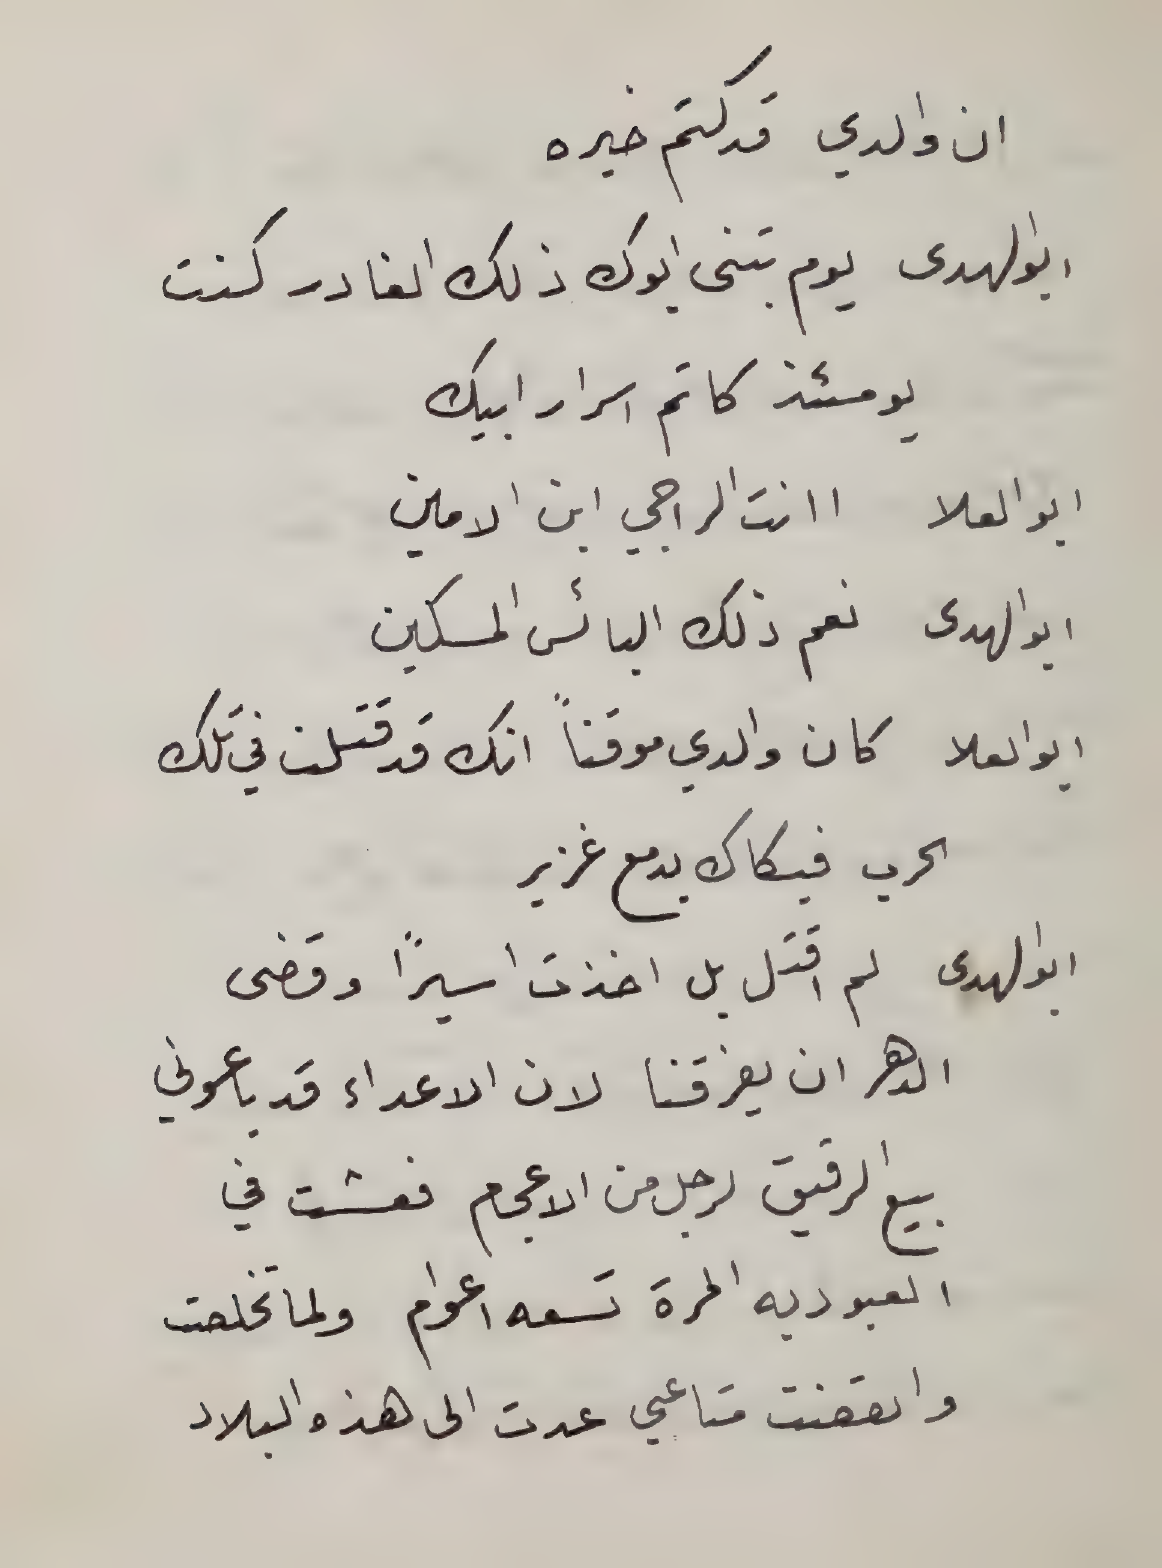 ان والدي قد كتم خبره
ابوالهدى يوم تبنى ابوك ذلك الغادر كنت
يومئذ كاتم اسرار ابيك
ابوالعلا اانت الراجي ابن الامين
ابوالهدى نعم ذلك البائس المسكين
ابوالعلا كان والدي موقناً انك قد قتلت في تلك
الحرب فبكاك بدمع غزير
ابوالهدى لم اقتل بل اخذت اسيرًا وقضى
الدهر ان يفرقنا لان الاعداء قد باعوني
بيع الرقيق لرجل من الاعجام فعشت في
العبوديه المرة تسعه اعوام ولما تخلصت
وانقضت متاعبي عدت الى هذه البلاد